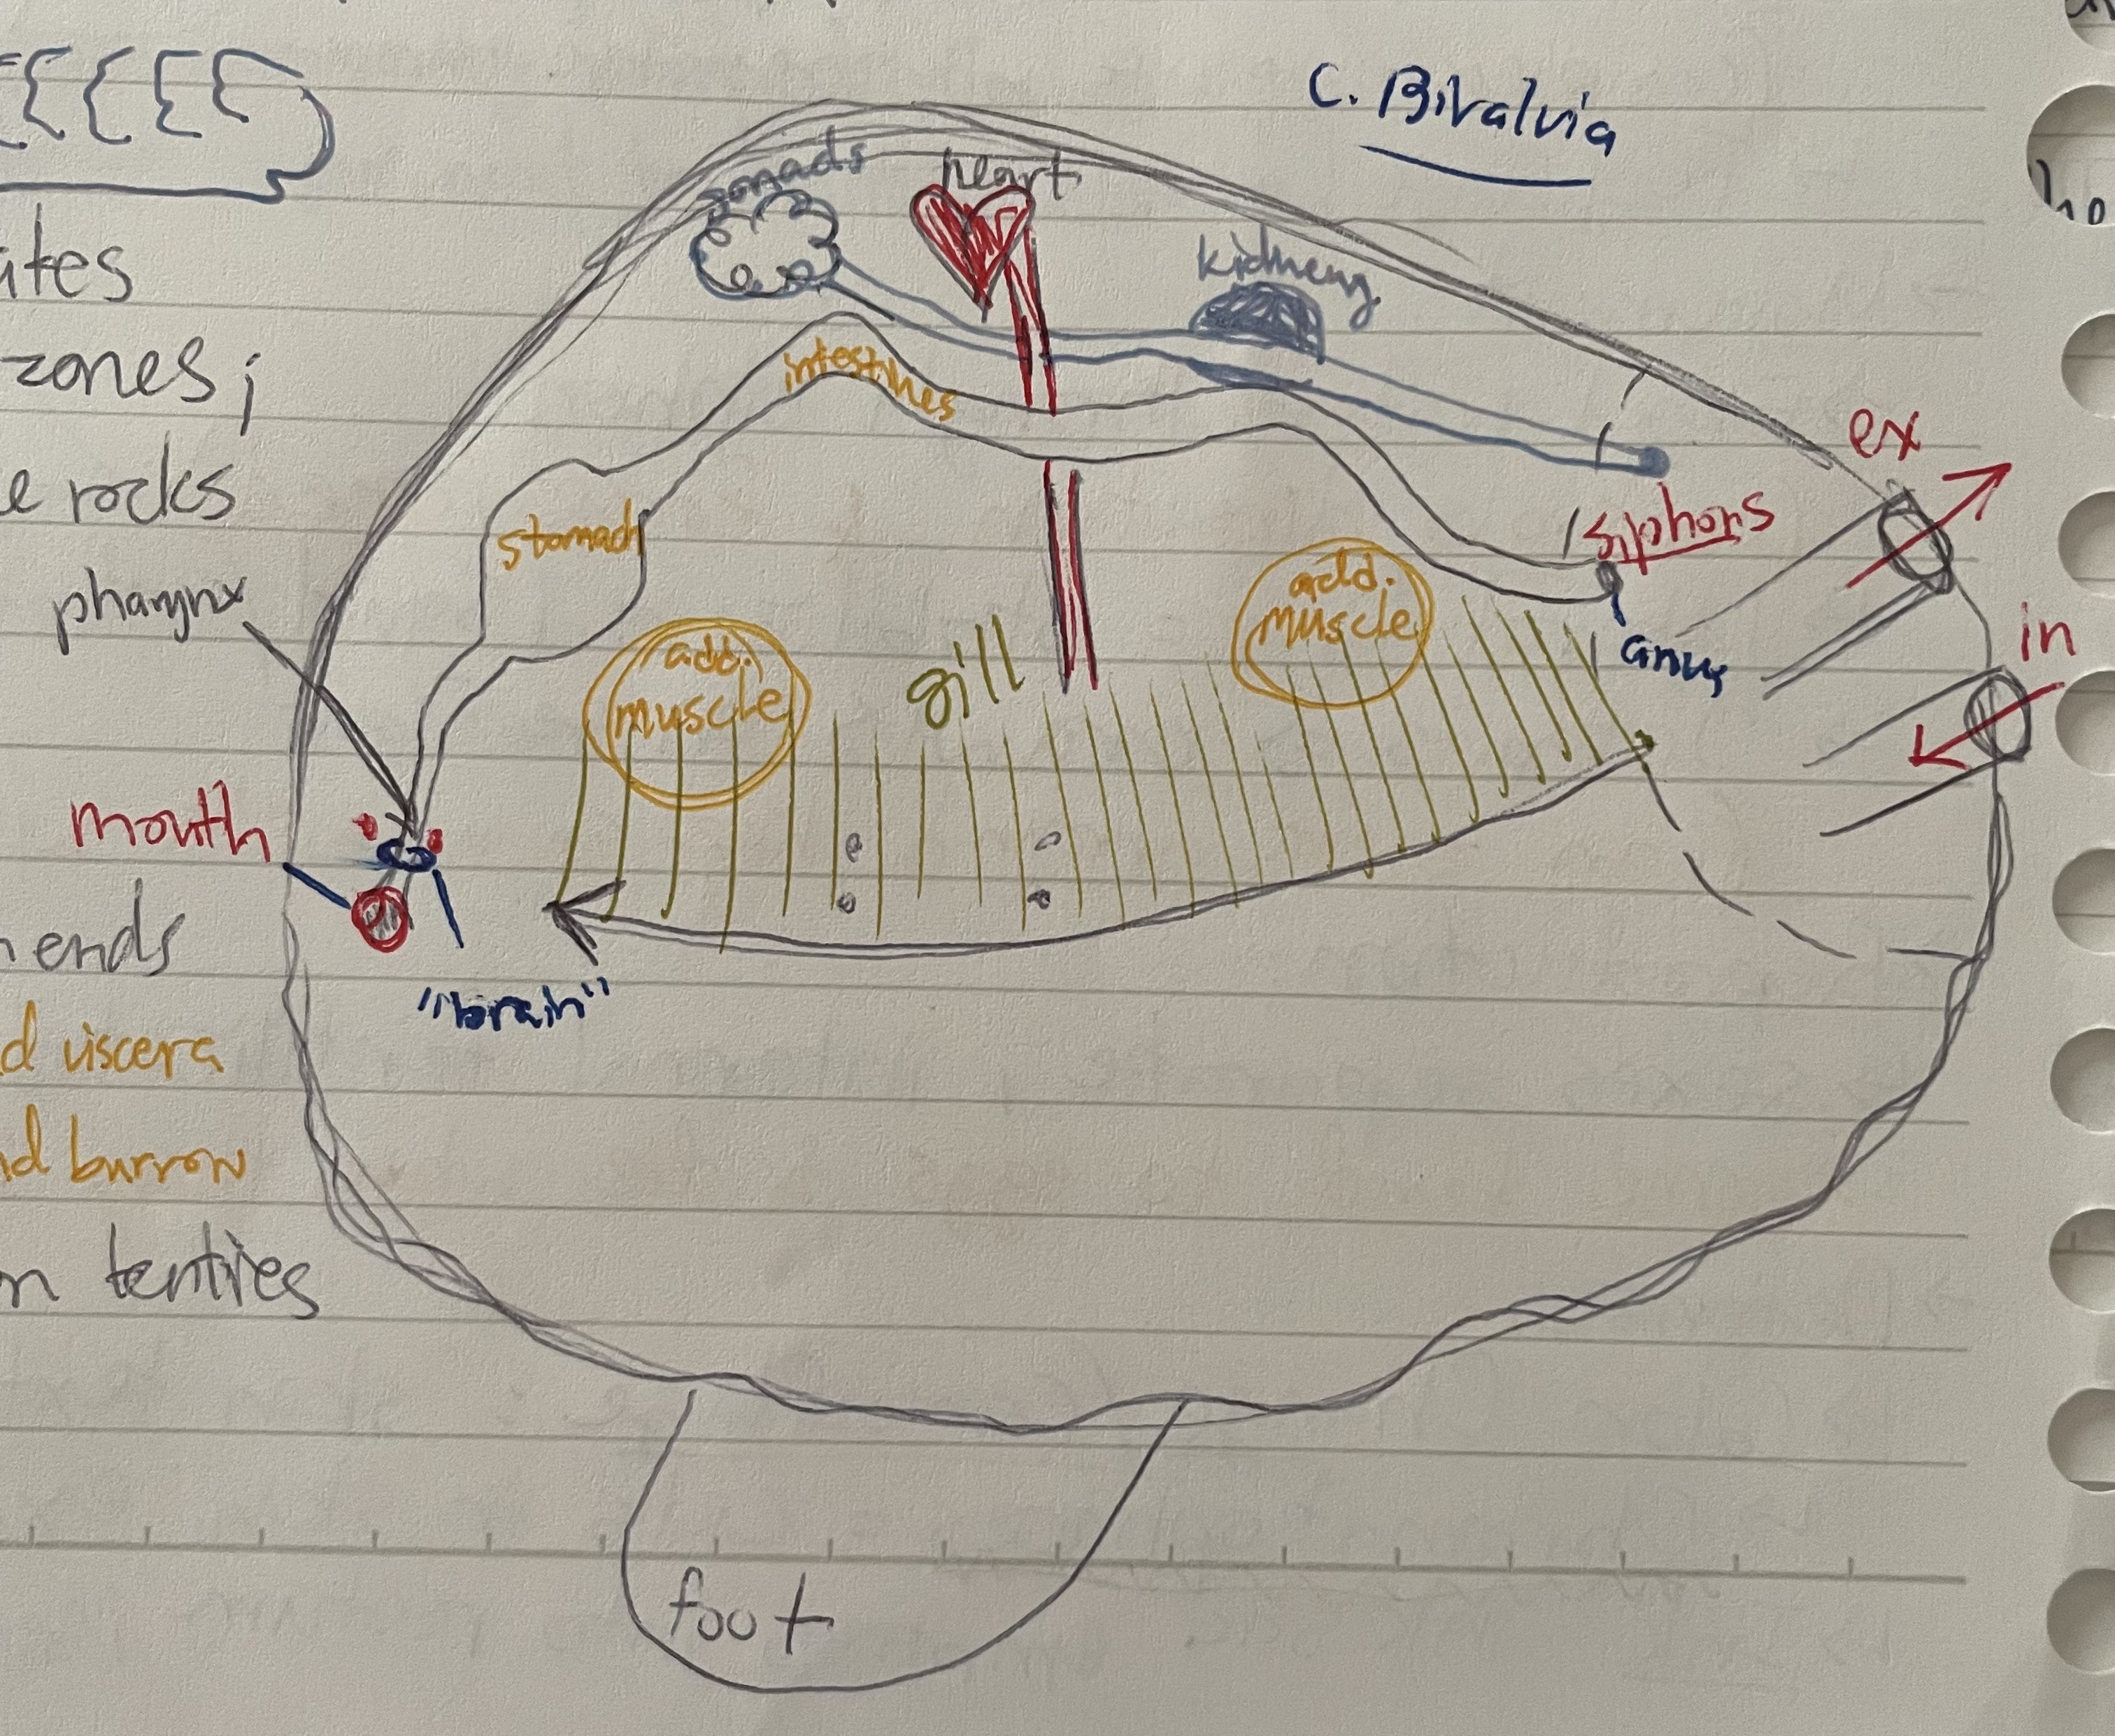 C. Bivalvia
gonads
heart
kidneny
ites
zones;
intestines
ex
e rocks
stomach
siphons
pharynx
add.
muscle
in
anus
add.
muscle
gill
mouth
n ends
"brain"
d viscera
nd burrow
n tentries
foot